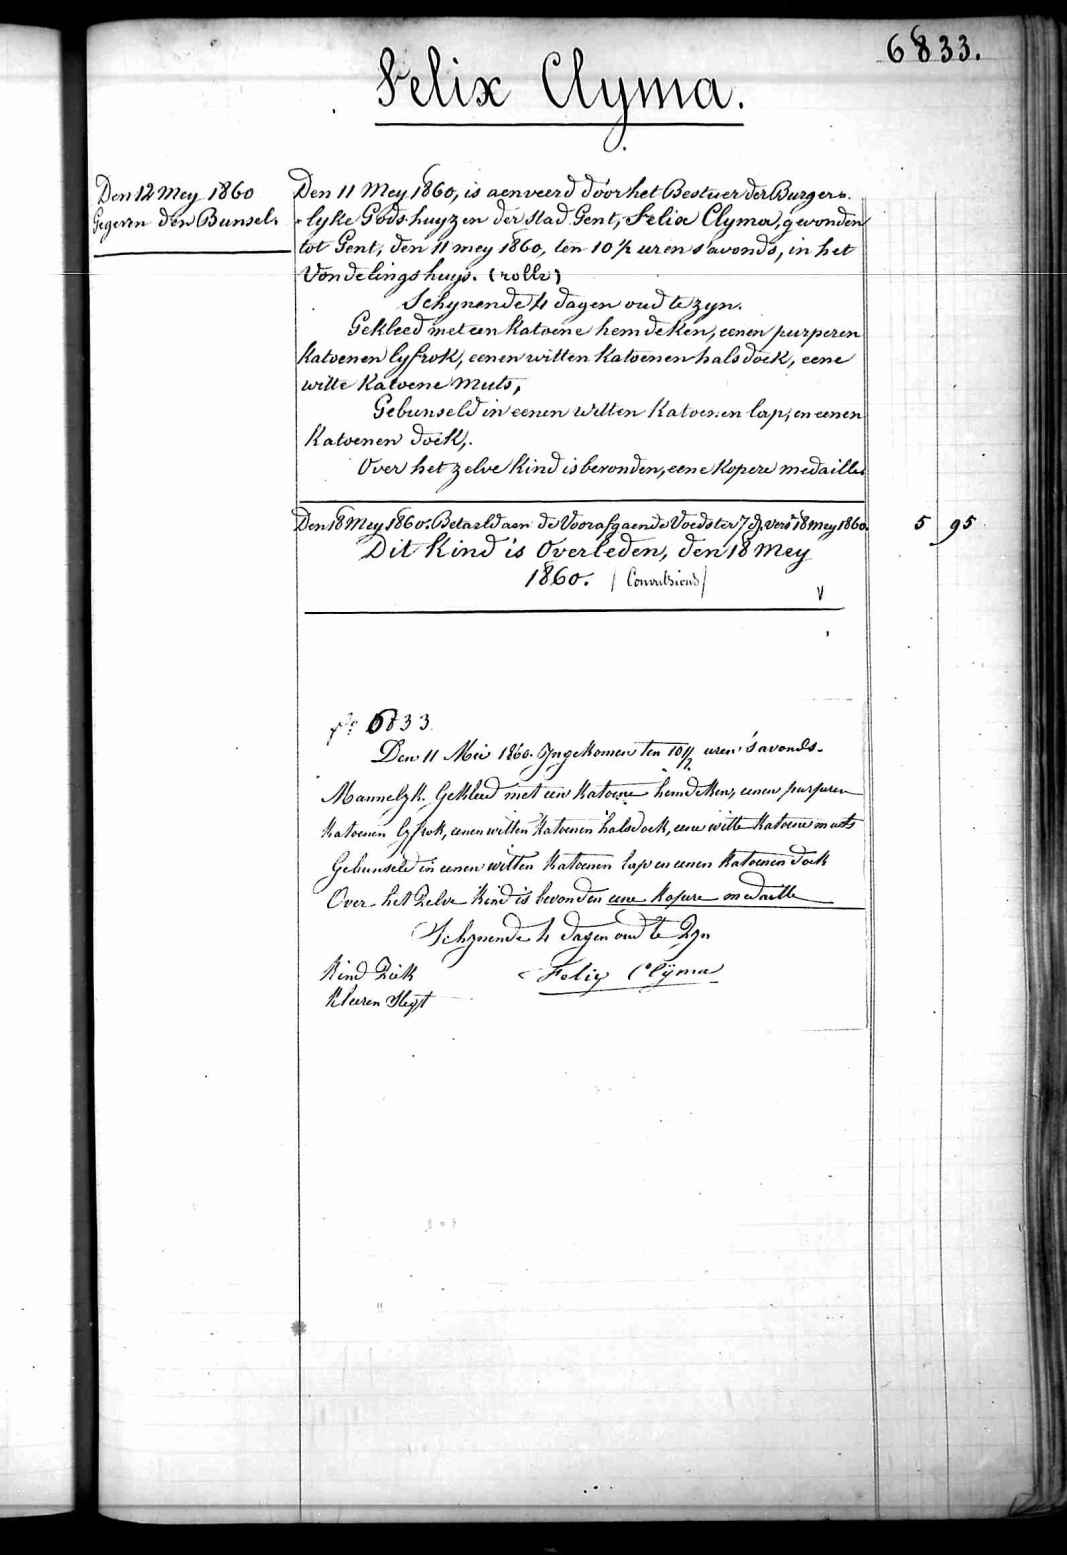 6833.
Felix Clyma.
Den 12 Mey 1860
Gegeven den Bunsel.
Den 11 Mey 1860, is aenveerd door het Bestuer der Burger-
lyke Godshuyzen der stad Gent, Felix Clyma, gevonden
tot Gent, den 11 mey 1860, ten 10 ½ uren s'avonds, in het
Vondelingshuys. (rolle)
Schynende 4 dagen oud te zyn.
Gekleed met een katoene hemdeken, eenen purperen
katoenen lyfrok, eenen witten katoenen halsdoek, eene
witte katoene muts,
Gebunseld in eenen witten katoenen lap, en eenen
katoenen doek,.
Over het zelve kind is bevonden, eene kopere medaille.
Den 18 Mey 1860. Betaeld aen de Voorafgaende Voedster 7 d. vers. 18 mey 1860. 5 95
Dit kind is Overleden, den 18 mey
1860. (Convulsions)
N° 6833
Den 11 Mei 1860. Ingekomen ten 10 ½ uren 's avonds.
Mannelyk. Gekleed met een katoene hemdeken, eenen purperen
katoenen lyfrok, eenen witten katoenen halsdoek, eene witte katoene muts
Gebunseld in eenen witten katoenen lap en eenen katoenen doek
Over het Zelve kind is bevonden eene kopere medaille
Schynende 4 dagen oud te Zyn
Kind Ziek
Felix Clÿma
Kleeren Slegt